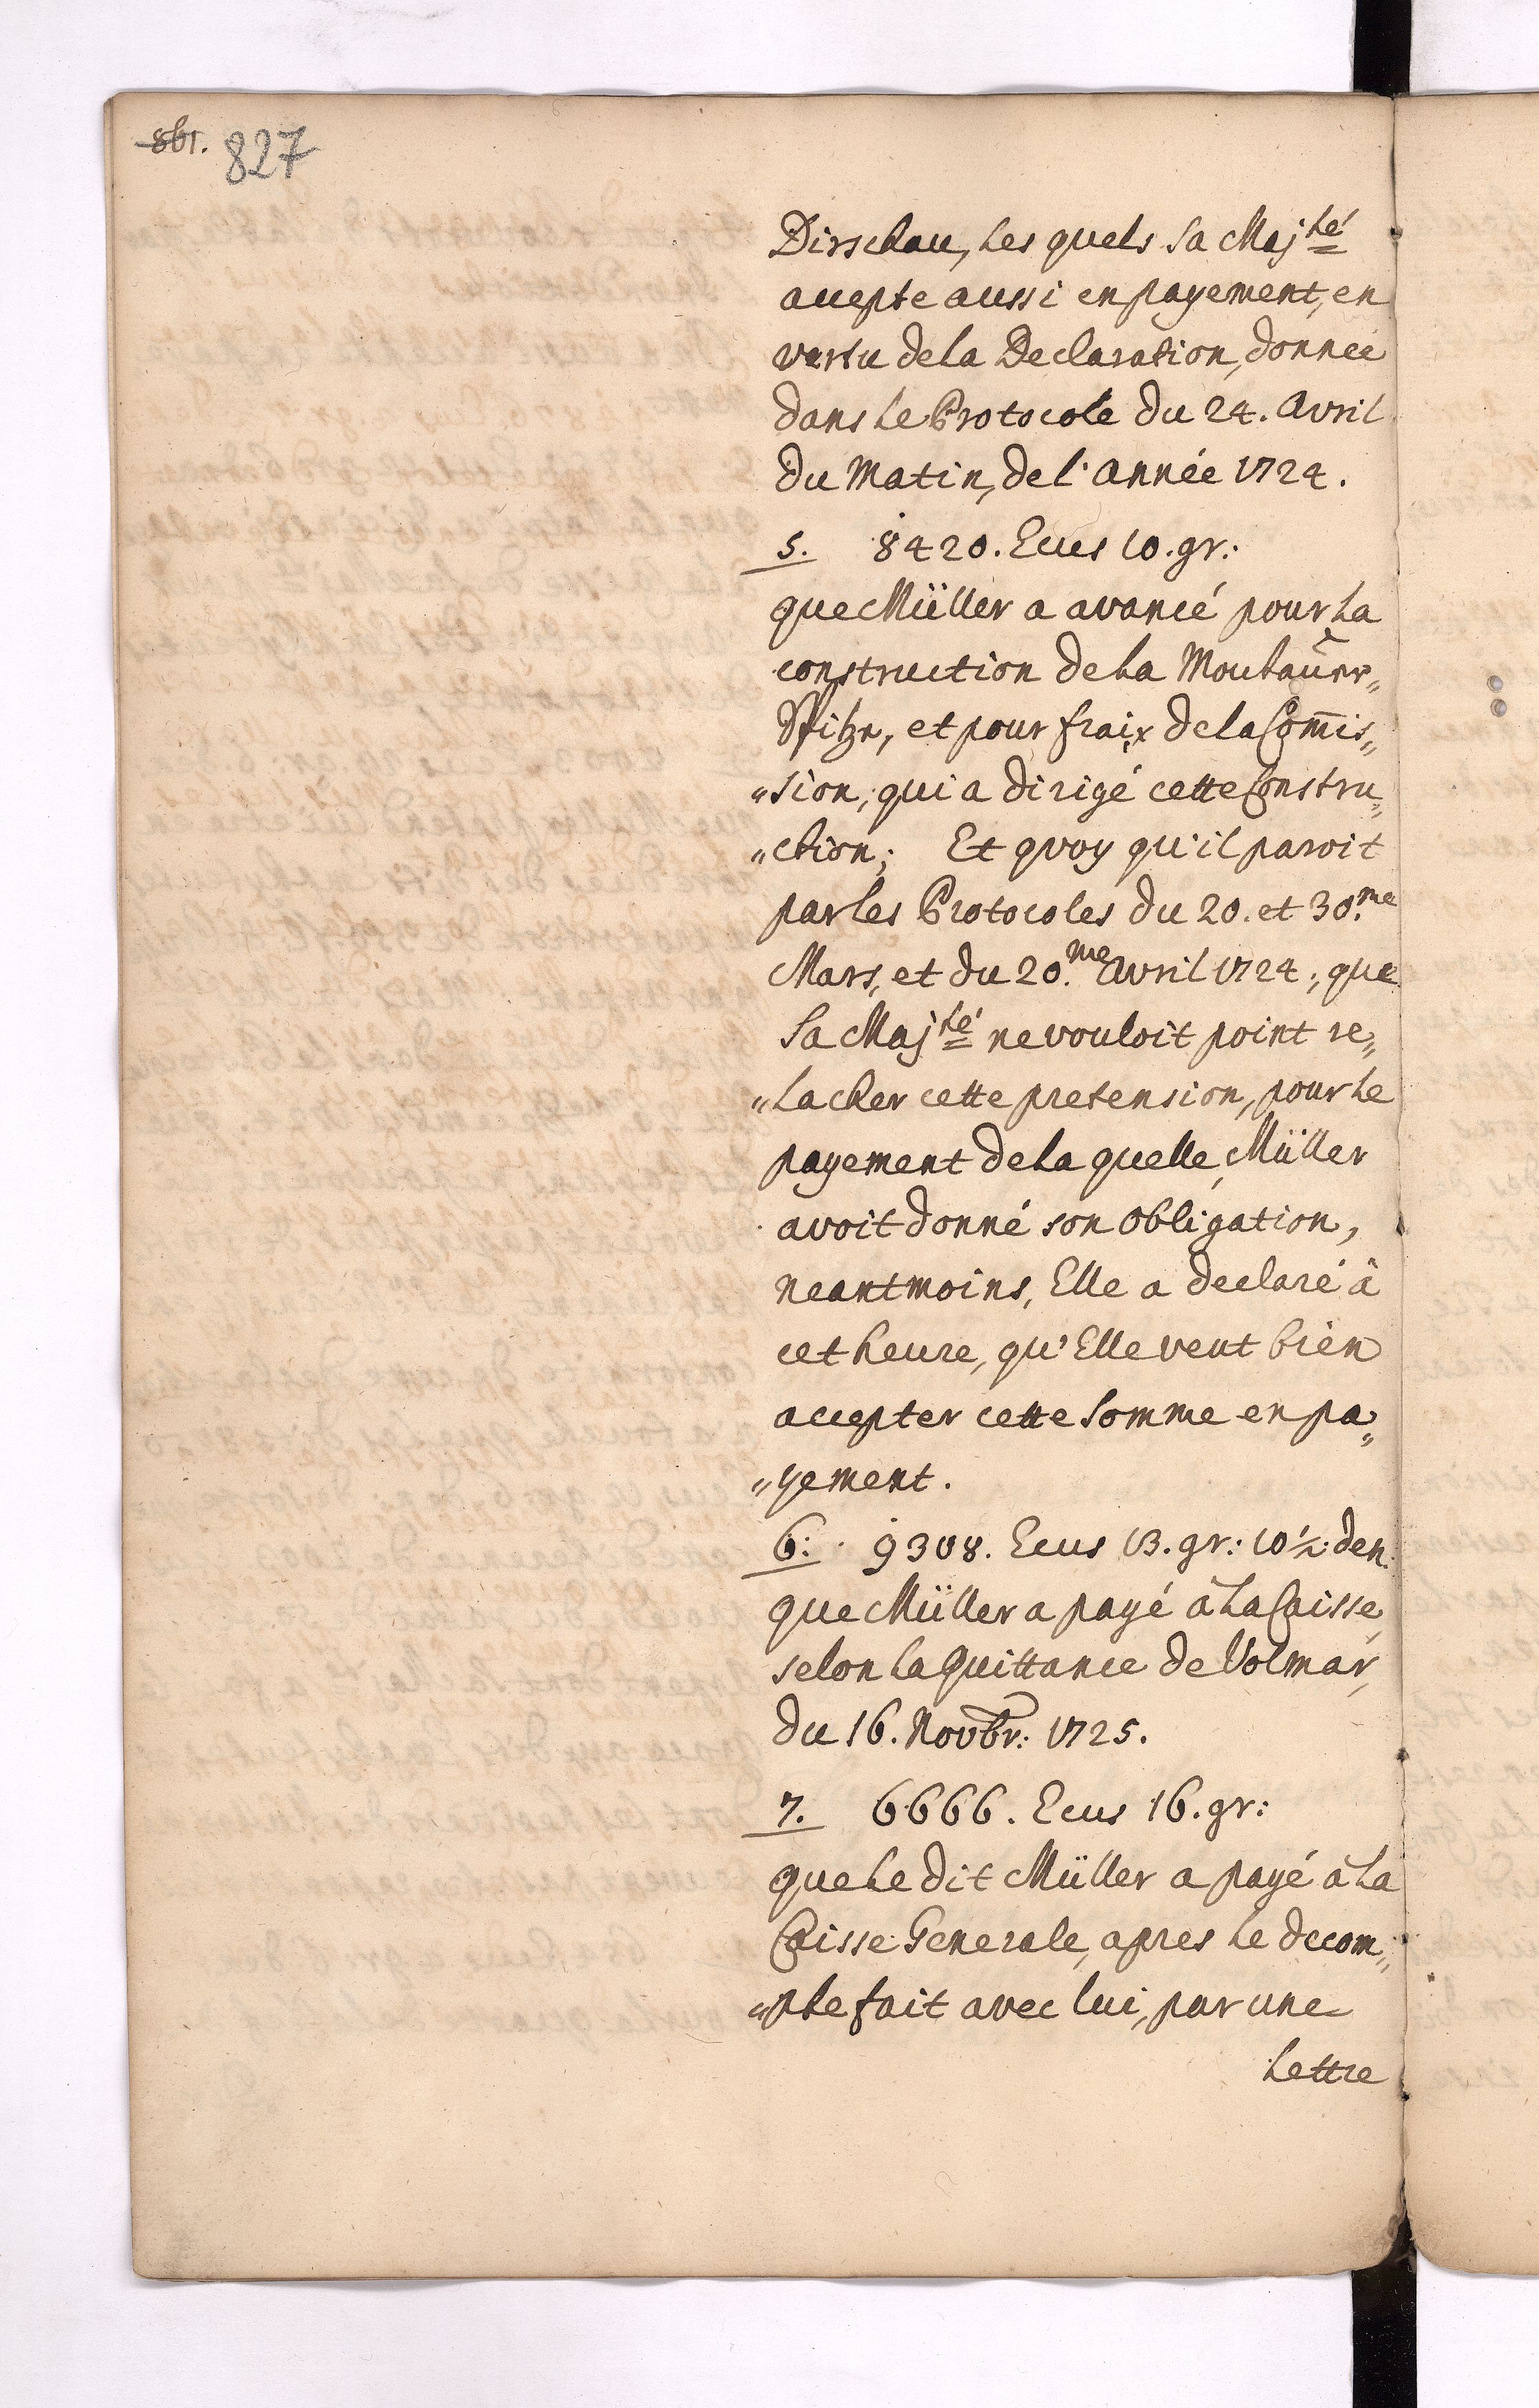 861. 827
Dirschau, les quels Sa Maj.té
accepte aussi en payement, en
vertu de la Declaration, donneé
dans le Protocole du 24. Avril
du Matin, de l'année 1724.
5. 8420. Ecus 10. gr:
que Müller a avancé pour la
construction de la Montauer„
Spitze, et pour fraix de la Com̄is„
„sion, qui a dirigé cette Constru„
„ction; Et quoy qu'il paroit
par les Protocoles du 20. et 30.me
Mars, et du 20.me Avril 1724, que
Sa Maj.té ne vouloit point re„
„lacher cette pretension, pour le
payement de la quelle, Müller
avoit donné son Obligation,
neantmoins, Elle a declaré à
cet heure, qu'Elle veut bien
accepter cette Somme en pa„
„yement.
6. 9308. Ecus 13. gr: 10½ den:
que Müller a payé à la Caisse,
selon la Quittance de Volmar,
du 16. Novbr: 1725.
7. 6666. Ecus 16. gr:
que le dit Müller a payé à la
Caisse Generale, apres le decom„
„pte fait avec lui, par une
Lettre